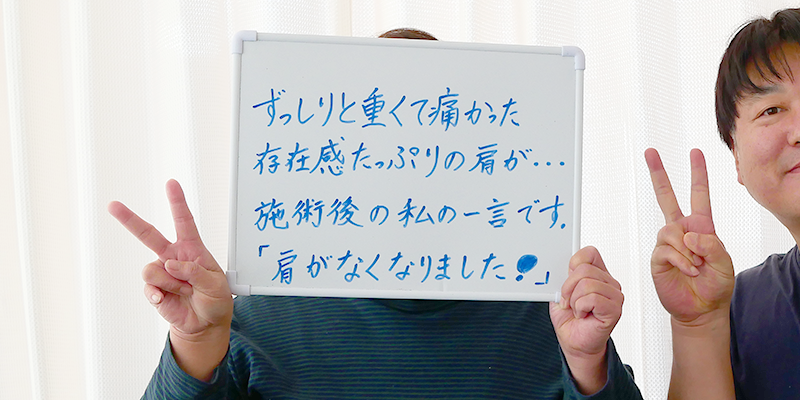 ずっしりと重くて痛かった
存在感たっぷりの肩が・・・
施術後の私の一言です.
「肩がなくなりました!」